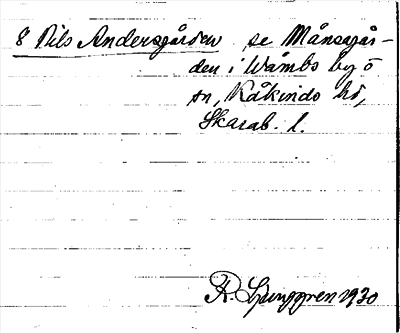 8 Nils Andersgården se Månsagår-
den i Wambs by o
sn, Kåkinds hd,
Skarab. l.
R. Ljunggren 1930